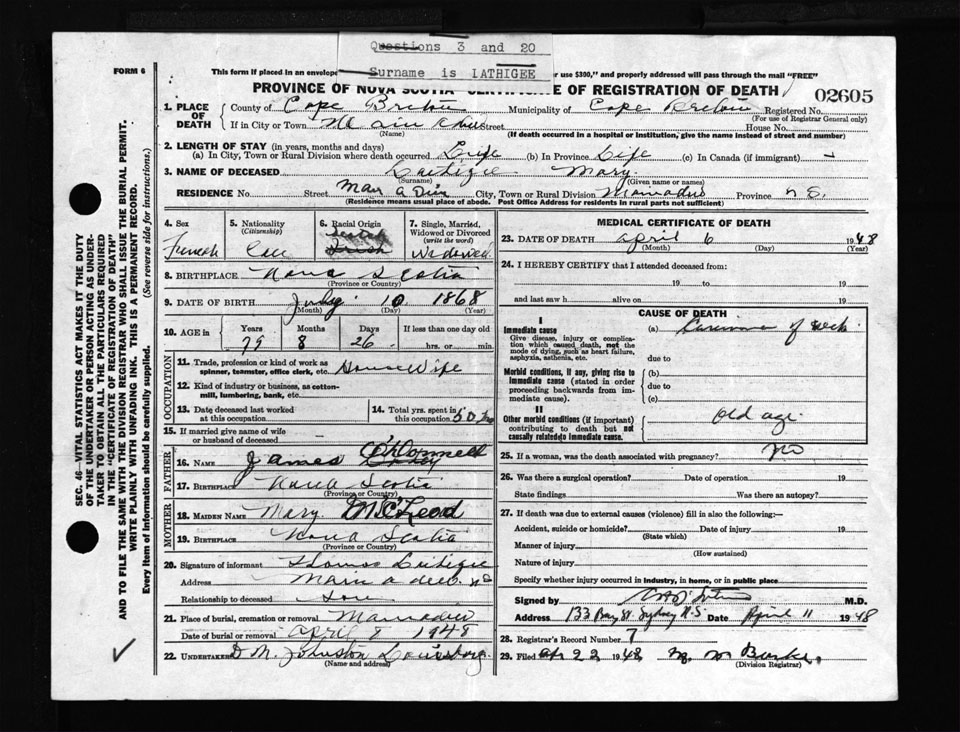 Questions 3 and 20
Surname is LATHIGEE
FORM 6
This form if placed in an envelope
or use $300," and properly addressed will pass through the mail "FREE"
PROVINCE OF NOVA SCOTIA CERTIFICATE OF REGISTRATION OF DEATH
02605
1. PLACE OF DEATH
County of Cape Breton Municipality of Cape Breton Registered No.
(For use of Registrar General only)
If in City or Town Street House No.
(Name) (If death occurred in a hospital or institution, give the name instead of street and number)
2. LENGTH OF STAY (in years, months and days)
(a) In City, Town or Rural Division where death occurred Life (b) In Province Life (c) In Canada (if immigrant) -
3. NAME OF DECEASED Mary
(Surname) (Given name or names)
RESIDENCE No. Street City, Town or Rural Division Province N S.
(Residence means usual place of abode. Post Office Address for residents in rural parts not sufficient)
4. Sex Female
5. Nationality (Citizenship) Can
6. Racial Origin
7. Single, Married, Widowed or Divorced (write the word) Widowed
8. BIRTHPLACE Nova Scotia
(Province or Country)
9. DATE OF BIRTH July 10 1868
(Month) (Day) (Year)
10. AGE in Years Months Days If less than one day old
79 8 26 hrs. or min
OCCUPATION
11. Trade, profession or kind of work as spinner, teamster, office clerk, etc. House Wife
12. Kind of industry or business, as cotton-mill, lumbering, bank, etc.
13. Date deceased last worked at this occupation
14. Total yrs. spent in this occupation 50 yrs
15. If married give name of wife or husband of deceased
FATHER
16. NAME James O'Donnell
17. BIRTHPLACE Nova Scotia
(Province or Country)
MOTHER
18. MAIDEN NAME Mary McLeod
19. BIRTHPLACE Nova Scotia
(Province or Country)
20. Signature of informant Thomas
Address
Relationship to deceased Son
21. Place of burial, cremation or removal
Date of burial or removal April 8 1948
22. UNDERTAKER D M. Johnston Louisburg
(Name and address)
MEDICAL CERTIFICATE OF DEATH
23. DATE OF DEATH April 6 1948
(Month) (Day) (Year)
24. I HEREBY CERTIFY that I attended deceased from:
19 to 19
and last saw h alive on 19
CAUSE OF DEATH
I
Immediate cause
Give disease, injury or complication which caused death, not the mode of dying, such as heart failure, asphyxia, asthenia, etc.
(a) Carcinoma of neck
due to
Morbid conditions, if any, giving rise to immediate cause (stated in order proceeding backwards from immediate cause).
(b)
due to
(c)
II
Other morbid conditions (if important) contributing to death but not causally related to immediate cause.
Old age
25. If a woman, was the death associated with pregnancy? No
26. Was there a surgical operation? Date of operation 19
State findings Was there an autopsy?
27. If death was due to external causes (violence) fill in also the following:—
Accident, suicide or homicide? Date of injury 19
(State which)
Manner of injury
(How sustained)
Nature of injury
Specify whether injury occurred in industry, in home, or in public place
Signed by M.D.
Address 133 Bay St. Sydney N.S. Date April 11 1948
28. Registrar's Record Number 7
29. Filed Ap 22 1948 M. M Burke.
(Division Registrar)
SEC. 46—VITAL STATISTICS ACT MAKES IT THE DUTY
OF THE UNDERTAKER OR PERSON ACTING AS UNDER-
TAKER TO OBTAIN ALL THE PARTICULARS REQUIRED
IN THE "CERTIFICATE OF REGISTRATION OF DEATH"
AND TO FILE THE SAME WITH THE DIVISION REGISTRAR WHO SHALL ISSUE THE BURIAL PERMIT.
WRITE PLAINLY WITH UNFADING INK. THIS IS A PERMANENT RECORD.
Every item of information should be carefully supplied. (See reverse side for instructions.)